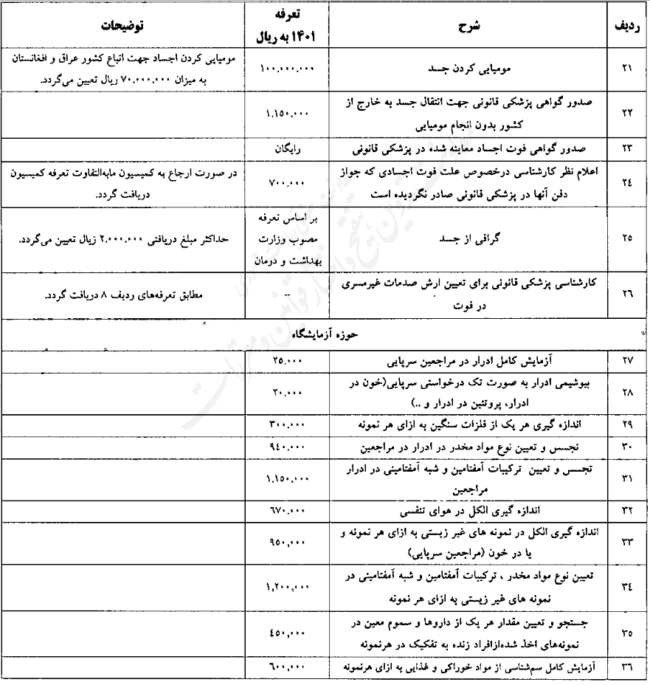 ردیف شرح تعرفه ۱۴۰۱ به ریال توضیحات
۲۱ مومیایی کردن جسد ۱۰۰,۰۰۰,۰۰۰ مومیایی کردن اجساد جهت اتباع کشور عراق و افغانستان
به میزان ۷۰,۰۰۰,۰۰۰ ریال تعیین می‌گردد.
۲۲ صدور گواهی پزشکی قانونی جهت انتقال جسد به خارج از
کشور بدون انجام مومیایی ۱,۱۵۰,۰۰۰
۲۳ صدور گواهی فوت اجساد معاینه شده در پزشکی قانونی رایگان
۲۴ اعلام نظر کارشناسی درخصوص علت فوت اجسادی که جواز
دفن آنها در پزشکی قانونی صادر نگردیده است ۷۰۰,۰۰۰ در صورت ارجاع به کمیسیون مابه‌التفاوت تعرفه کمیسیون
دریافت گردد.
۲۵ گرافی از جسد بر اساس تعرفه
مصوب وزارت
بهداشت و درمان حداکثر مبلغ دریافتی ۲,۰۰۰,۰۰۰ زیال تعیین می‌گردد.
۲۶ کارشناسی پزشکی قانونی برای تعیین ارش صدمات غیرمسری
در فوت -- مطابق تعرفه‌های ردیف ۸ دریافت گردد.
حوزه آزمایشگاه
۲۷ آزمایش کامل ادرار در مراجعین سرپایی ۲۵,۰۰۰
۲۸ بیوشیمی ادرار به صورت تک درخواستی سرپایی(خون در
ادرار، پروتئین در ادرار و ..) ۲۰,۰۰۰
۲۹ اندازه گیری هر یک از فلزات سنگین به ازای هر نمونه ۳۰۰,۰۰۰
۳۰ تجسس و تعیین نوع مواد مخدر در ادرار در مراجعین ۹۴۰,۰۰۰
۳۱ تجسس و تعیین ترکیبات آمفتامین و شبه آمفتامینی در ادرار
مراجعین ۱,۱۵۰,۰۰۰
۳۲ اندازه گیری الکل در هوای تنفسی ۶۷۰,۰۰۰
۳۳ اندازه گیری الکل در نمونه های غیر زیستی به ازای هر نمونه و
یا در خون (مراجعین سرپایی) ۹۵۰,۰۰۰
۳۴ تعیین نوع مواد مخدر ، ترکیبات آمفتامین و شبه آمفتامینی در
نمونه های غیر زیستی به ازای هر نمونه ۱,۲۰۰,۰۰۰
۳۵ جستجو و تعیین مقدار هر یک از داروها و سموم معین در
نمونه‌های اخذ شده‌ازافراد زنده به تفکیک در هرنمونه ۴۵۰,۰۰۰
۳۶ آزمایش کامل سم‌شناسی از مواد خوراکی و غذایی به ازای هرنمونه ۶۰۰,۰۰۰